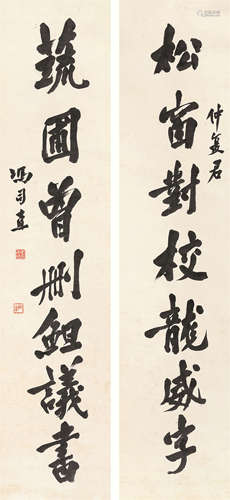 仲复君
松窗對校龍威字
蔬圃曾刪鮑議書
馮司直